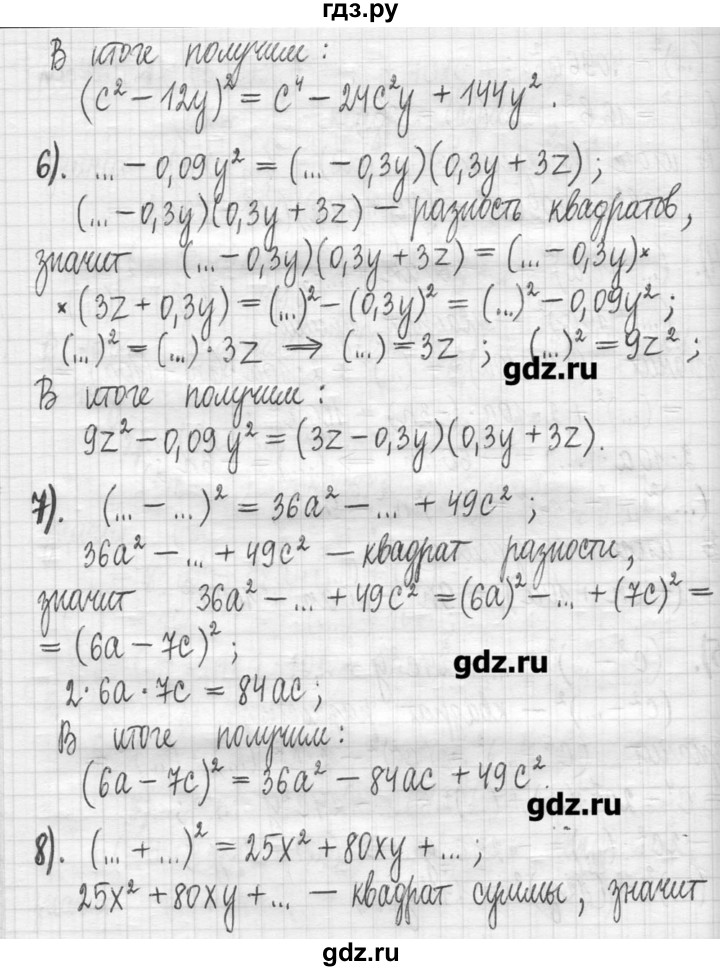 гдз.ру
В итоге получим:
(c² – 12y)² = c⁴ – 24c²y + 144y².
6). ... – 0,09y² = (... – 0,3y)(0,3y + 3z);
(... – 0,3y)(0,3y + 3z) – разность квадратов,
значит (... – 0,3y)(0,3y + 3z) = (... – 0,3y)×
×(3z + 0,3y) = (...)² – (0,3y)² = (...)² – 0,09y²;
(...)² = (...)·3z ⇒ (...) = 3z ; (...)² = 9z²;
gdz.ru
В итоге получим:
9z² – 0,09y² = (3z – 0,3y)(0,3y + 3z).
7). (... – ...)² = 36a² – ... + 49c²;
36a² – ... + 49c² – квадрат разности,
значит 36a² – ... + 49c² = (6a)² – ... + (7c)² =
= (6a – 7c)²;
gdz.ru
2·6a·7c = 84ac;
В итоге получим:
(6a – 7c)² = 36a² – 84ac + 49c².
gdz.ru
8). (... + ...)² = 25x² + 80xy + ...;
25x² + 80xy + ... – квадрат суммы, значит
gdz.ru